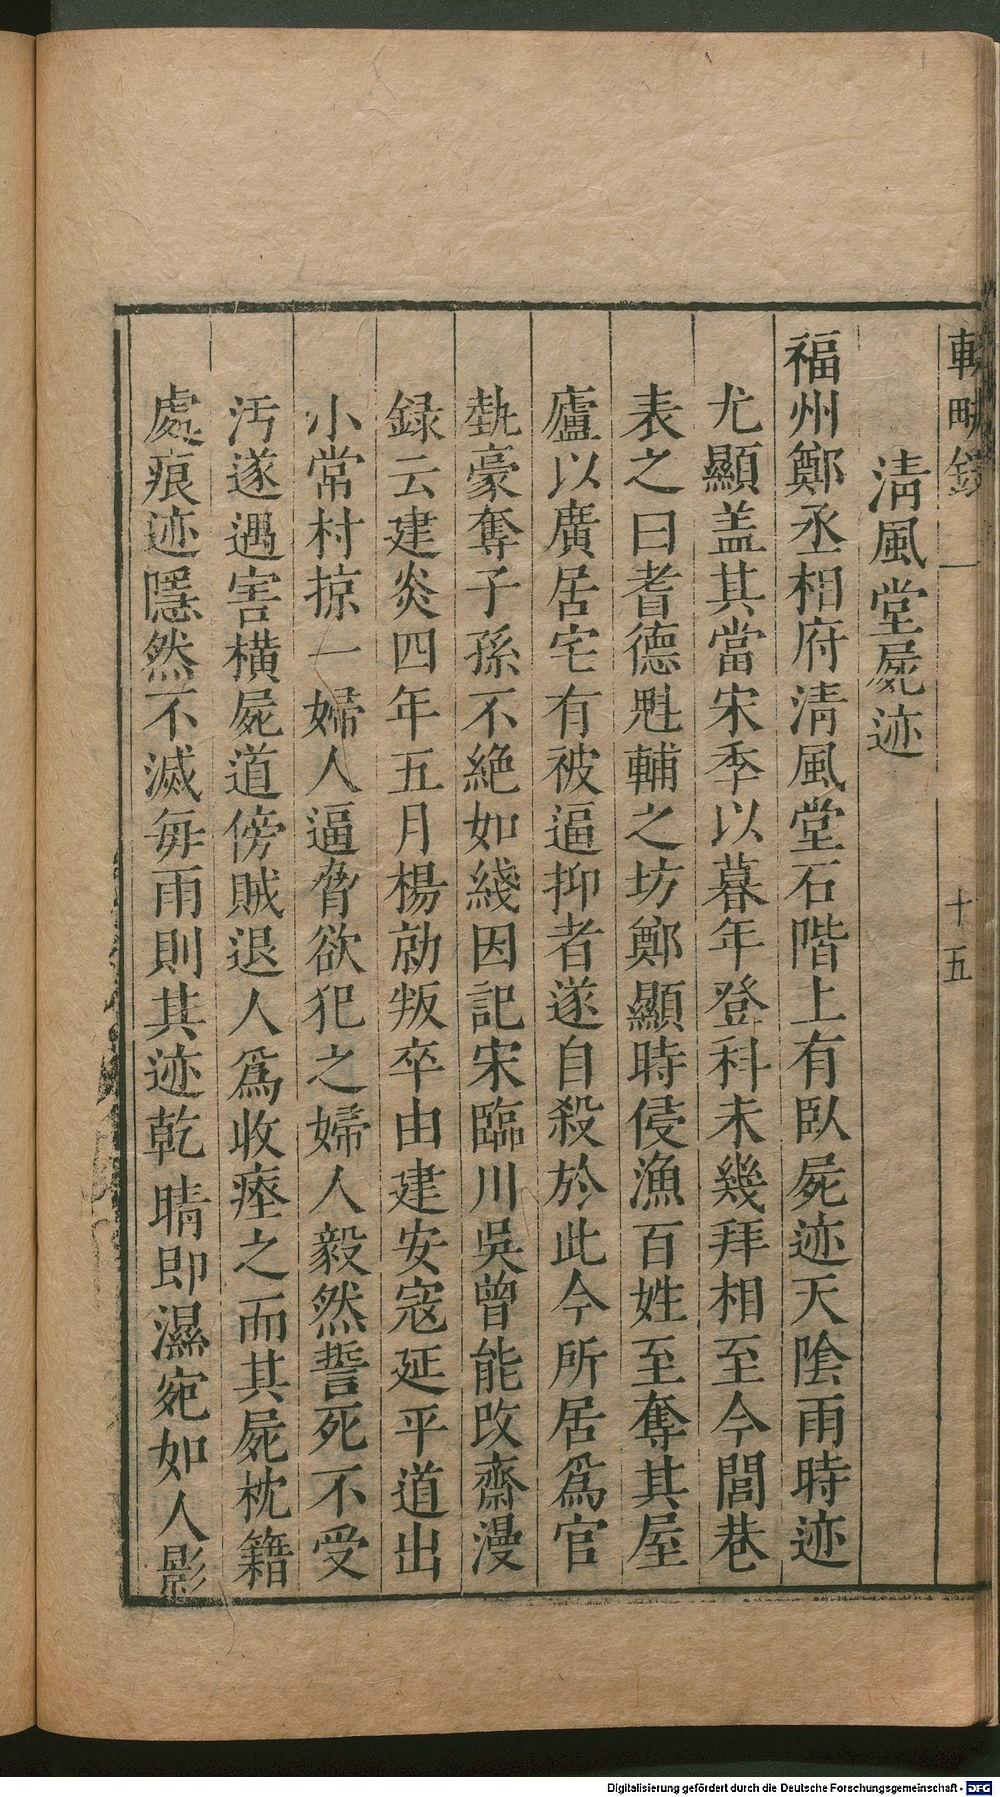 輟畊錄 一 十五
淸風堂屍迹
福州鄭丞相府淸風堂石階上有臥屍迹天陰雨時迹
尤顯盖其當宋季以暮年登科未幾拜相至今閭巷
表之曰耆德魁輔之坊鄭顯時侵漁百姓至奪其屋
廬以廣居宅有被逼抑者遂自殺於此今所居爲官
埶豪奪子孫不絶如綫因記宋臨川吳曾能改齋漫
録云建炎四年五月楊勍叛卒由建安寇延平道出
小常村掠一婦人逼脅欲犯之婦人毅然誓死不受
汚遂遇害橫屍道傍賊退人爲收瘞之而其屍枕籍
處痕迹隱然不滅每雨則其迹乾晴即濕宛如人影
Digitalisierung gefördert durch die Deutsche Forschungsgemeinschaft - DFG